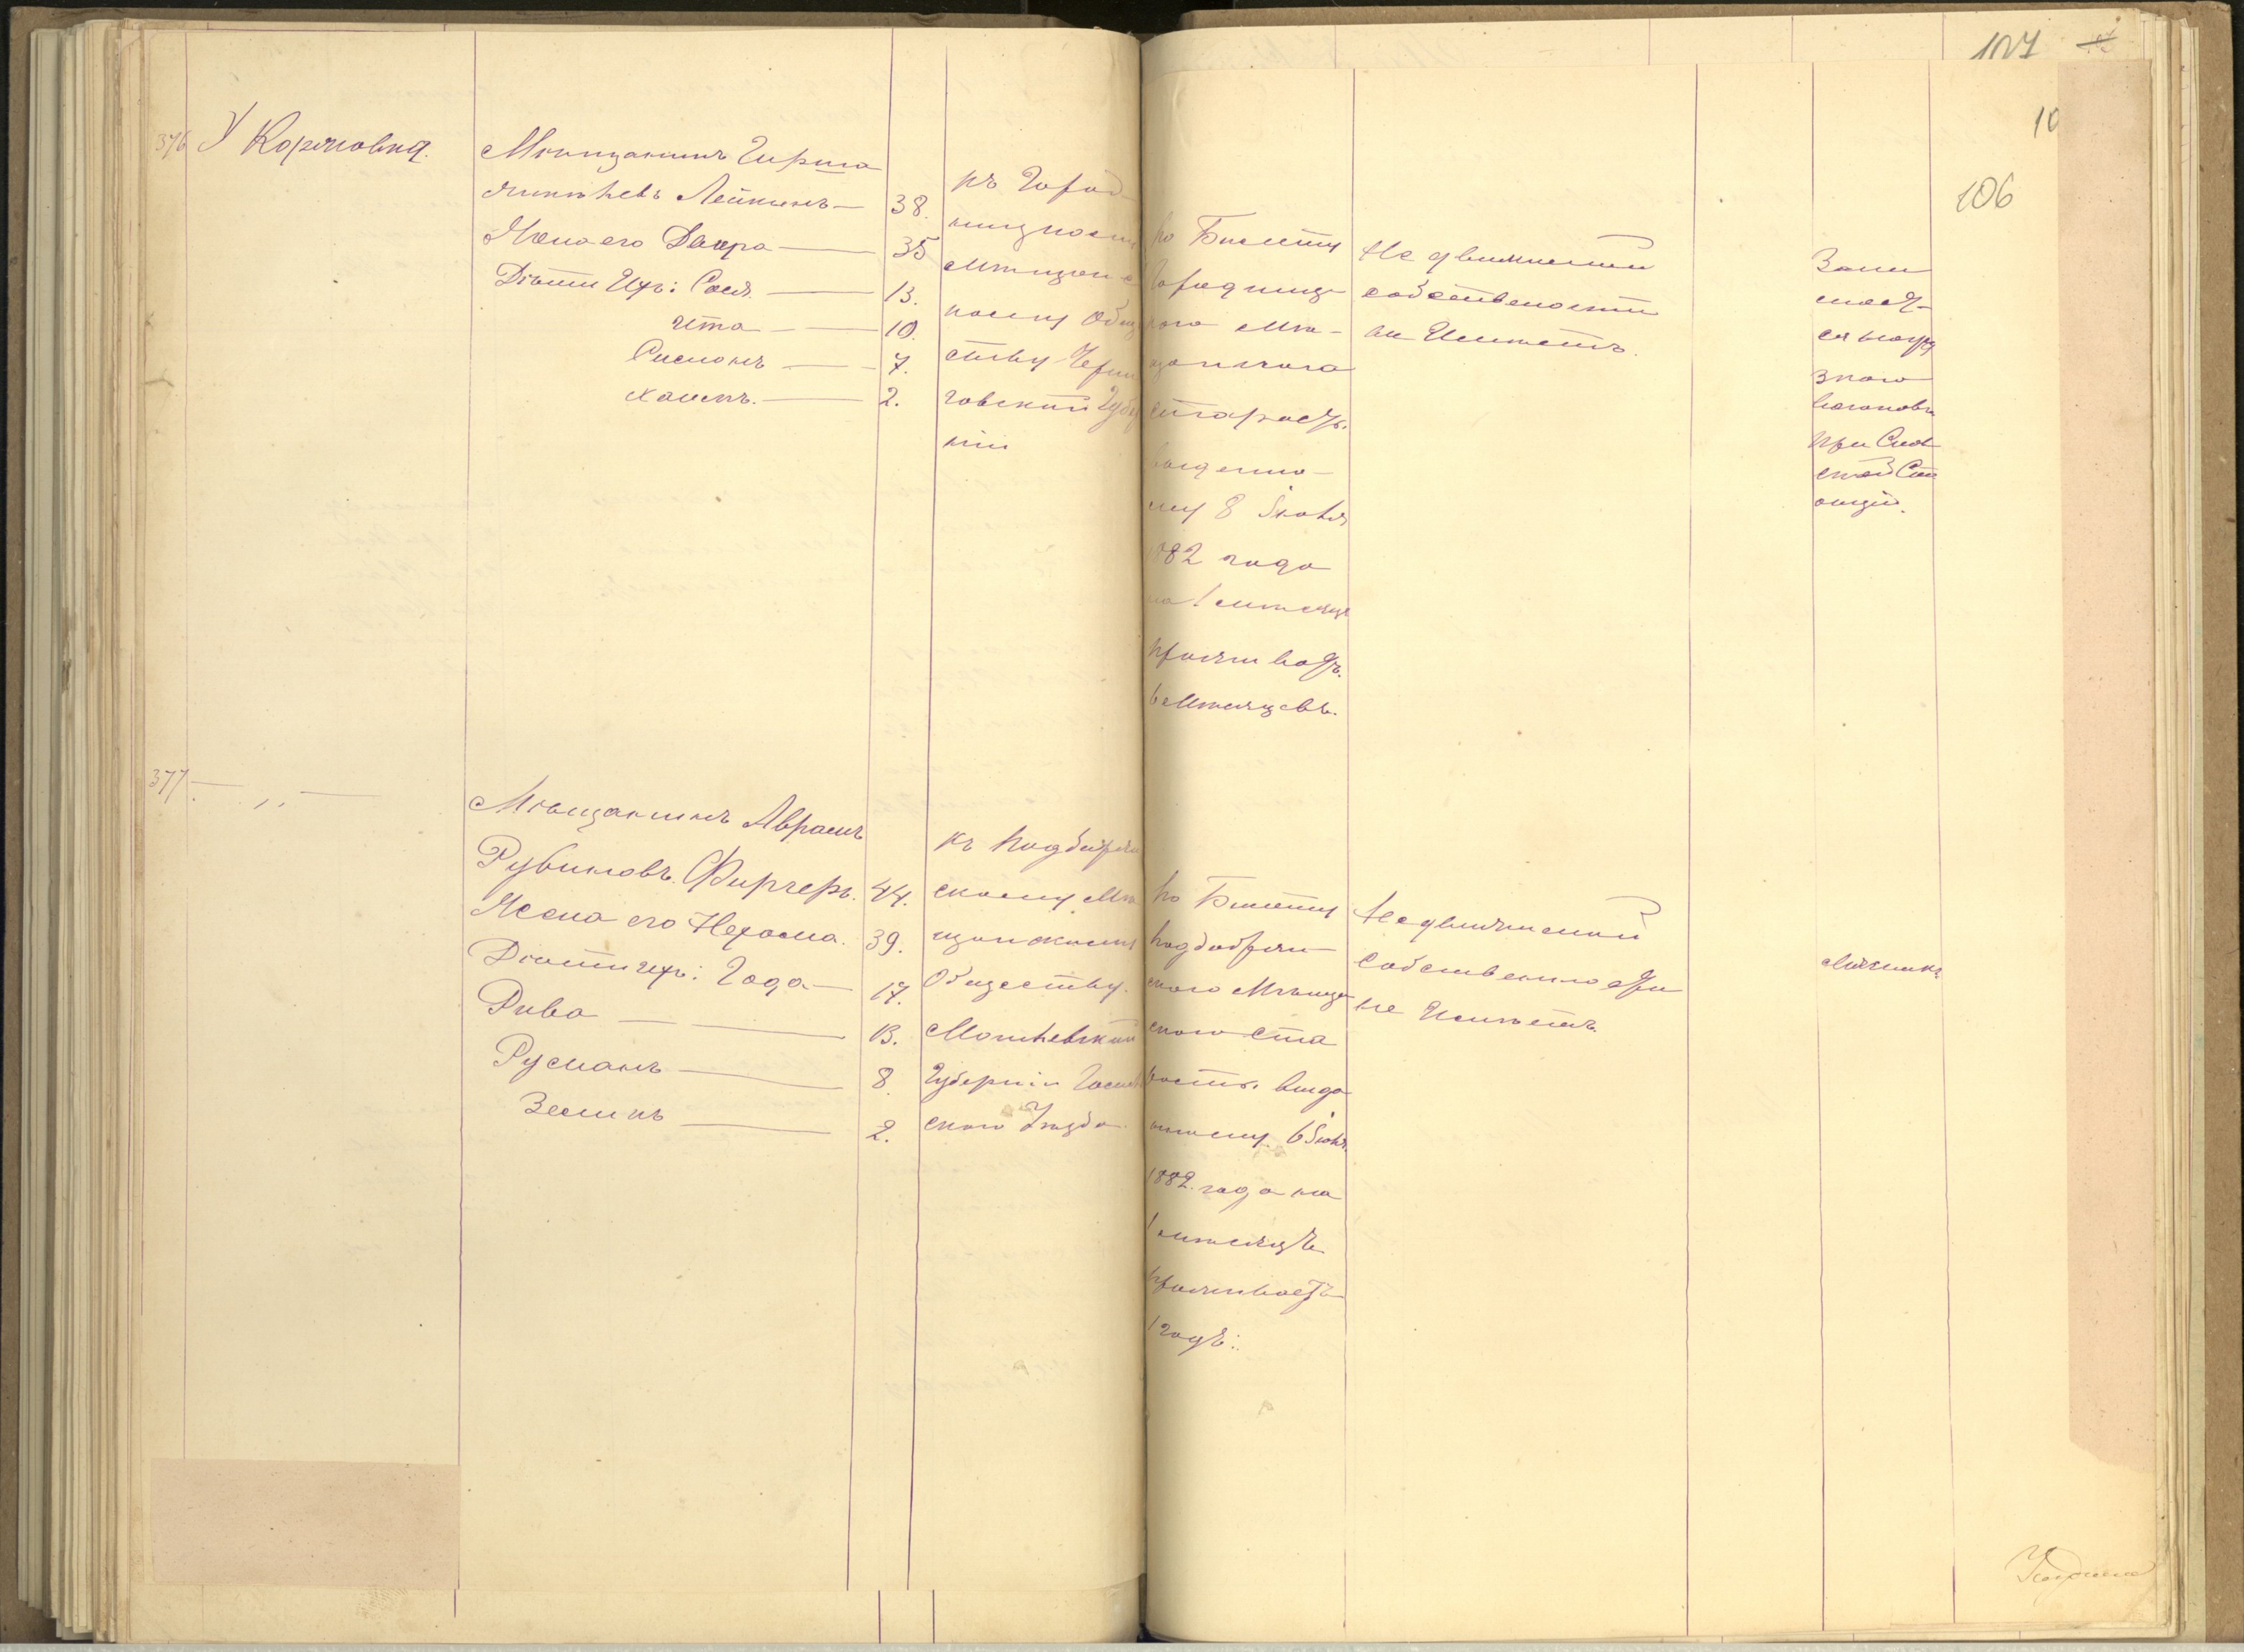 107
10
106
376 У Кормовка.
Мѣщанинъ Гирша
Лейкинъ — 38.
Жена его Двера — 35
Дѣти Ихъ: Сося — 13.
Ита — 10.
Симонъ — 7.
Хаимъ. — 2.
къ Город-
ницкому
Мѣщан-
скому Общ
ству Черни
говской Губер
ніи
по Билету
Городниц-
кого Мѣ-
щанского
старосты.
выданно-
му 8 Іюня
1882 года
на 1 мѣсяцъ
прожив.
6 Мѣсяцевъ.
Недвижимой
собственности
не Имѣетъ.
Зани
мает-
ся
вагоновъ
при
ской Ст
анціи.
377 — „ —
Мѣщанинъ Аврамъ
Рувиновъ Фиргеръ. 44.
Жена его Нехама. 39.
Дѣти ихъ: Года — 17.
Рива — 13.
Русманъ — 8.
Зеликъ — 2.
къ Подбобрян
скому Мѣ
щанскому
Обществу.
Могилевской
Губерніи Гомел
ского Уѣзда
по Билету
подобрян-
ского Мѣщан
ского ста
росты. выда
нному 6 Іюня
1882 года на
1 мѣсяцъ
проживаетъ
1 годъ.
Недвижимой
Собственности
не Имѣетъ.